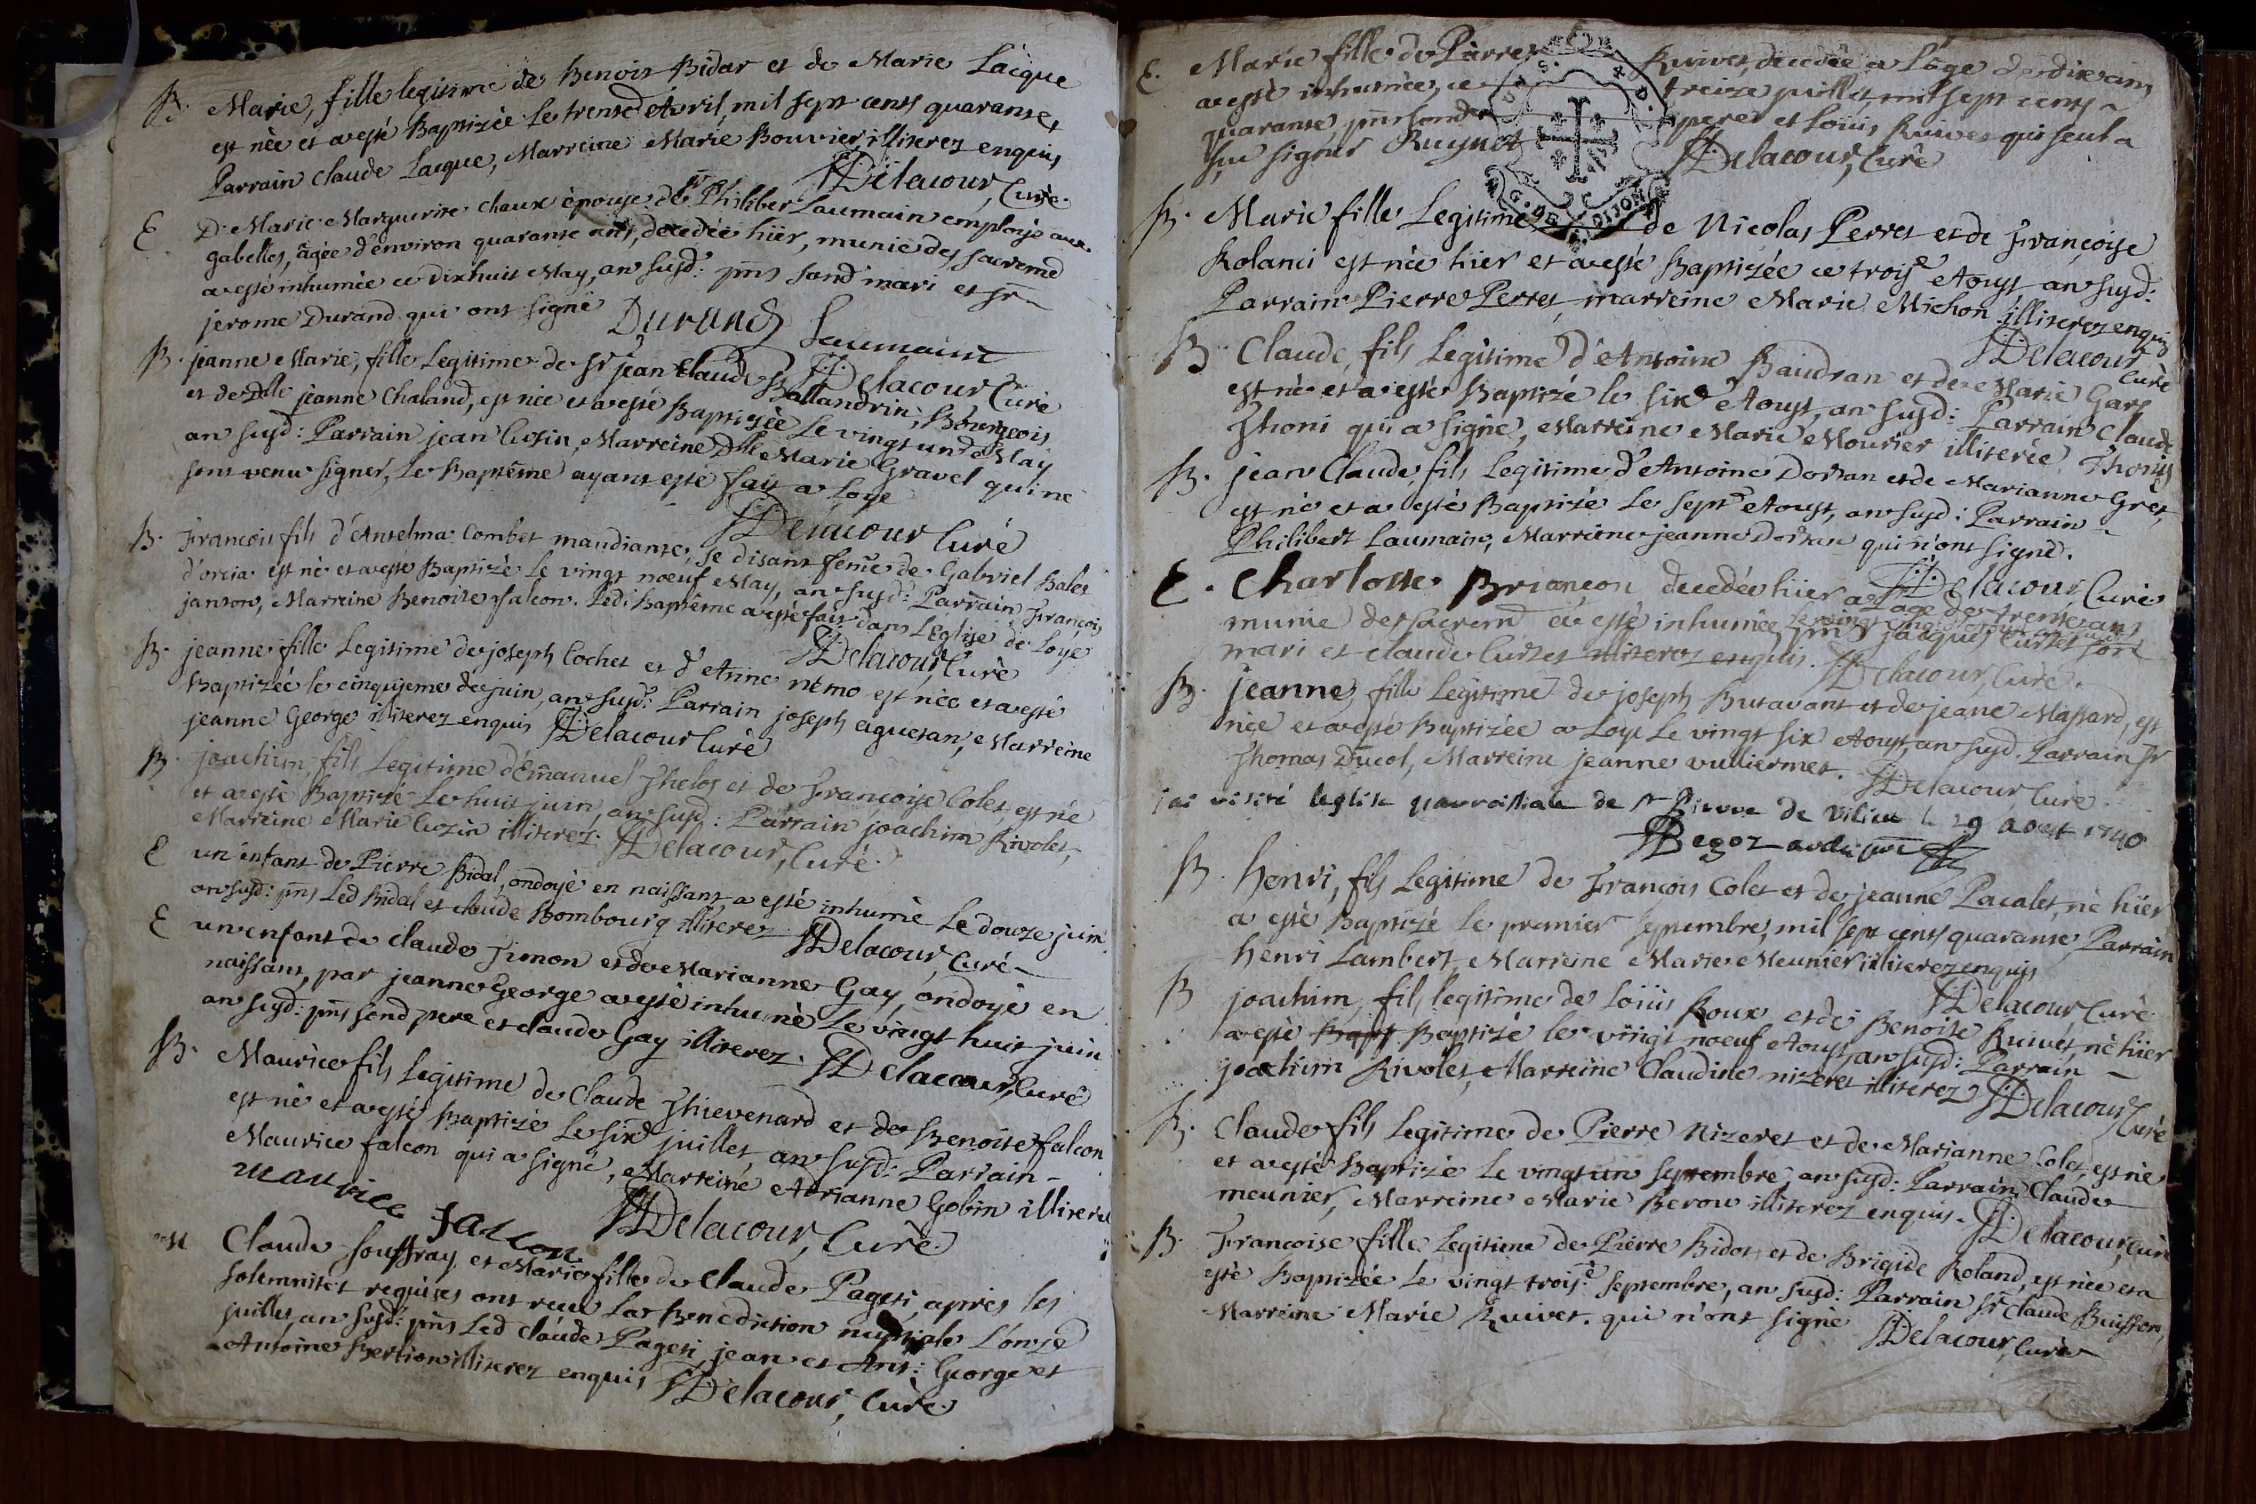 B. Marie, fille legitime de Benoit Bidar et de Marie Lacque
est née et a esté Baptizée le trente Avril, mil sept cents quarante,
Parrain claude Lacque, Marreine Marie Bouvier, illiterez enquis
Delacour, Curé.
E D.e Marie Marguerite chaux épouse de Sr Philiber Laumain employé aux
gabelles, agée d'environ quarante ans, decedée hiier, munie des sacremd
a esté inhumée ce dixhuit May, an susd: pnts sond mari et Sr
jerome Durand qui ont signé Durand Laumain
Delacour Curé
B. jeanne Marie, fille Legitime de Sr jean Claude Ballandrin, Bourgeois
et de Dlle jeanne Chaland, est née et a esté Baptizée le vingt un May
an susd: Parrain jean Cuzin, Marreine Dlle Marie Gravel qui ne
sont venu signer, le Baptême ayant esté fait a Loye
Delacour Curé
B. François fils d'Antelma Combet mandiante, se disant feme de Gabriel Balet
est né et a esté Baptizé le vingt noeuf May, an susd: Parrain, François
janton, Marreine Benoite falcon. Led: Baptême a esté fait dans l'Eglise de Loye
Delacour, Curé
B. jeanne fille Legitime de joseph Cochet et d'Anne némo est née et a esté
Baptizée le cinquieme de juin, an susd: Parrain joseph aguetan, Marreine
jeanne George illiterez enquis Delacour Curé
B. joachim, fils Legitime d'Emanuel Thelos et de Françoise Colet, est né
et a esté Baptizé Le huit juin, an susd: Parrain joachim Rivolet,
Marreine Marie Cuzin illiterez. Delacour, Curé.
E un enfant de Pierre Bidal, ondoyé en naissant a esté inhumé Le douze juin
an susd: pnts Led Bidal et claude Bombourg illiterez Delacour, Curé
E un enfant de claude Simon et de Marianne Gay, ondoyé en
naissant, par jeanne George a esté inhumé Le vingt huit juin
an susd: pnts sond pere et claude Gay illiterez. Delacour, Curé
B. Maurice fils Legitime de Claude Thievenard et de Benoite falcon
est né et a esté Baptizé Le sixe juillet, an susd: Parrain
Maurice falcon qui a signé, Marreine Marianne Gobin illiteré
maurice falcon Delacour, Curé.
M Claude Souffray, et Marie fille de Claude Pageti, après les
solemnités requises ont receu La Benediction nuptiale L'onze
juillet, an susd: pnts Led Claude Pageti, jean et Ant: George et
Antoine Bertion illiterez enquis Delacour, Curé.
E. Marie fille de Pierre Ruivet, decedée a l'âge de dix ans
a esté inhumée, ce treize juillet mil sept cents
quarante, pnts sond pere et Loüis Ruivet qui seul a
sçu signer Ruynet Delacour, Curé
G. DE DIJON
B. Marie fille Legitime de Nicolas Perret et de Françoise
Rolanci est née hiier et a esté Baptizée ce troise Aoust an susd:
Parrain Pierre Perret, marreine Marie Michon illiterez enquis
Delacour Curé
B Claude, fils Legitime d'Antoine Baudran et de Marie Gare
est né et a esté Baptizé le sixe Aoust, an susd: Parrain Claude
Thoni qui a signé, Marreine Marie Mourier illiterée Thonis
B. jean Claude, fils Legitime d'Antoine Dortan et de Marianne Gret,
est né et a esté Baptizé Le sept Aoust, an susd: Parrain
Philibert Laumain, Marreine jeanne Dortan qui n'ont signé.
Delacour Curé
E. Charlotte Briançon decedée hiier a l'age de trente ans
munie des sacremd a esté inhumée le vingt cinq pnts jacques Curtet son
mari et claude Curtet illiterez enquis. Delacour, Curé.
B. jeanne, fille Legitime de joseph Butavant et de jeane Massard, est
née et a esté Baptizée a Loye Le vingt six Aoust, an susd. Parrain Sr
Thomas Ducol, Marreine jeanne vulliermet. Delacour Curé.
j'ai visité leglise parroissiale de st Pierre de vilieu le 29 aoust 1740
Begoz
B. Henri, fils Legitime de François Colet et de jeanne Pacalet, né hiier
a esté Baptizé le premier septembre, mil sept cents quarante, Parrain
henri Lambert, Marreine Marie Meunier illiterez enquis
Delacour, Curé
B joachim, fils legitime de Loüis Roux et de Benoite Ruivet, né hiier
a esté Bapt Baptizé le vingt noeuf Aoust, an susd: Parrain
joachim Rivolet, Marreine Claudine nizeret illiterez Delacour Curé
B. Claude fils Legitime de Pierre Nizeret et de Marianne Colet, est né
et a esté Baptizé Le vingt un septembre, an susd: Parrain Claude
meunier, Marreine Marie Berou illiterez enquis. Delacour, Curé
B. Francoise fille Legitime de Pierre Bidot et de Brigide Roland, est née et a
esté Baptizée Le vingt trois.e septembre, an susd: Parrain Sr Claude Buisson,
Marreine Marie Ruivet. qui n'ont signé
Delacour, Curé